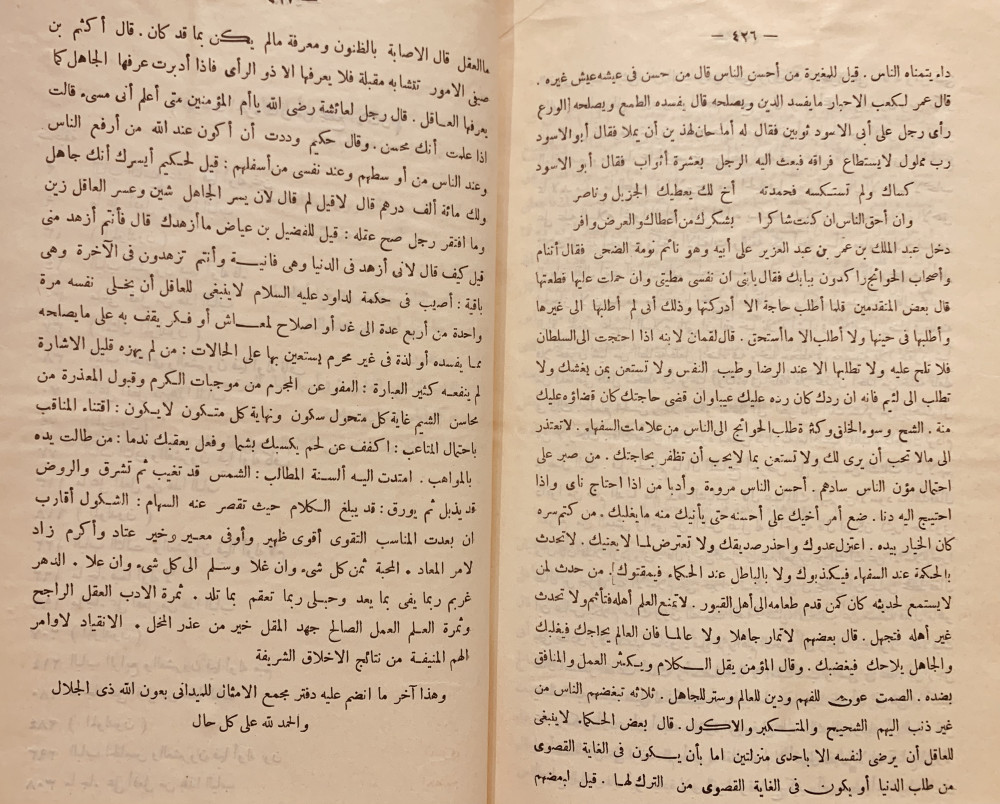 — ٤٢٦ —
داء يتمناه الناس . قيل للمغيرة من أحسن الناس قال من حسن فى عيشه عيش غيره .
قال عمر لكعب الاحبار مايفسد الدين ويصلحه قال يفسده الطمع ويصلحه الورع
رأى رجل على أبى الاسود ثوبين فقال له أما حان لهذين أن يملا فقال أبو الاسود
رب مملول لايستطاع فراقه فبعث اليه الرجل بعشرة أثواب فقال أبو الاسود
كساك ولم تستكسه فحمدته أخ لك يعطيك الجزيل وناصر
وان أحق الناس ان كنت شاكرا بشكرك من أعطاك والعرض وافر
دخل عبد الملك بن عمر بن عبد العزيز على أبيه وهو نائم نومة الضحى فقال أتنام
وأصحاب الحوائج راكدون ببابك فقال يابنى ان نفسى مطيتى وان حملت عليها قطعتها
قال بعض المتقدمين قلما أطلب حاجة الا أدركتها وذلك أنى لم أطلبها الى غيرها
وأطلبها فى حينها ولا أطلب الا ماأستحق . قال لقمان لابنه اذا احتجت الى السلطان
فلا تلح عليه ولا تطلبها الا عند الرضا وطيب النفس ولا تستعن بمن يغشك ولا
تطلب الى لئيم فانه ان ردك كان رده عليك عيبا وان قضى حاجتك كان قضاؤه عليك
منة . الشح وسوء الخلق وكثرة طلب الحوائج الى الناس من علامات السفهاء . لاتعتذر
الى مالا تحب أن يرى لك ولا تستعن بما لايحب أن تظفر بحاجتك . من صبر على
احتمال مؤن الناس سادهم . أحسن الناس مروءة وأدبا من اذا احتاج ناى واذا
احتيج اليه دنا . ضع أمر أخيك على أحسنه حتى يأتيك منه مايغلبك . من كتم سره
كان الخيار بيده . اعتزل عدوك واحذر صديقك ولا تعترض لما لايعنيك . لاتحدث
بالحكمة عند السفهاء فيكذبوك ولا بالباطل عند الحكماء فيمقتوك . من حدث لمن
لايستمع لحديثه كان كمن قدم طعامه الى أهل القبور . لاتمنع العلم أهله فتأثم ولا تحدث
غير أهله فتجهل . قال بعضهم لاتمار جاهلا ولا عالما فان العالم يحاجك فيغلبك
والجاهل يلاحك فيغضبك . وقال المؤمن يقل الكلام ويكثر العمل والمنافق
بضده . الصمت عون للفهم ودين للعالم وستر للجاهل . ثلاثه تبغضهم الناس من
غير ذنب اليهم الشحيح والمتكبر والاكول . قال بعض الحكماء لاينبغى
للعاقل أن يرضى لنفسه الا باحدى منزلتين اما بأن يكون فى الغاية القصوى
من طلب الدنيا أو يكون فى الغاية القصوى من الترك لها . قيل لبعضهم
ماالعقل قال الاصابة بالظنون ومعرفة مالم يكن بما قد كان . قال أكثم بن
صيفى الامور تتشابه مقبلة فلا يعرفها الا ذو الرأى فاذا أدبرت عرفها الجاهل كما
يعرفها العاقل . قال رجل لعائشة رضى الله ياأم المؤمنين متى أعلم أنى مسىء قالت
اذا علمت أنك محسن . وقال حكيم وددت أن أكون عند الله من أرفع الناس
وعند الناس من أوسطهم وعند نفسى من أسفلهم : قيل لحكيم أيسرك أنك جاهل
ولك مائة ألف درهم قال لاقيل لم قال لان يسر الجاهل شين وعسر العاقل زين
وما افتقر رجل صح عقله : قيل للفضيل بن عياض ماأزهدك قال فأنتم أزهد منى
قيل كيف قال لانى أزهد فى الدنيا وهى فانية وأنتم تزهدون فى الآخرة وهى
باقية : أصيب فى حكمة لداود عليه السلام لاينبغى للعاقل أن يخلى نفسه مرة
واحدة من أربع عدة الى غد أو اصلاح لمعاش أو فكر يقف به على مايصلحه
مما يفسده أو لذة فى غير محرم يستعين بها على الحالات : من لم يهزه قليل الاشارة
لم ينفعه كثير العبارة : العفو عن المجرم من موجبات الكرم وقبول المعذرة من
محاسن الشيم غاية كل متحول سكون ونهاية كل متكون لايكون : اقتناء المناقب
باحتمال المتاعب : اكفف عن لحم يكسبك بشما وفعل يعقبك ندما : من طالت يده
بالمواهب . امتدت اليه ألسنة المطالب : الشمس قد تغيب ثم تشرق والروض
قد يذبل ثم يورق : قد يبلغ الكلام حيث تقصر عنه السهام : الشكول أقارب
ان بعدت المناسب التقوى أقوى ظهير وأوفى معسير وخير عتاد وأكرم زاد
لامر المعاد . المحبة ثمن كل شىء وان غلا وسلم الى كل شىء وان علا . الدهر
غريم ربما يفى بما يعد وحبلى ربما تعقم بما تلد . ثمرة الادب العقل الراجح
وثمرة العلم العمل الصالح جهد المقل خير من عذر المخل . الانقياد لاوامر
الهم المنيفة من نتائج الاخلاق الشريفة
وهذا آخر ما انضم عليه دفتر مجمع الامثال للميدانى بعون الله ذى الجلال
والحمد لله على كل حال